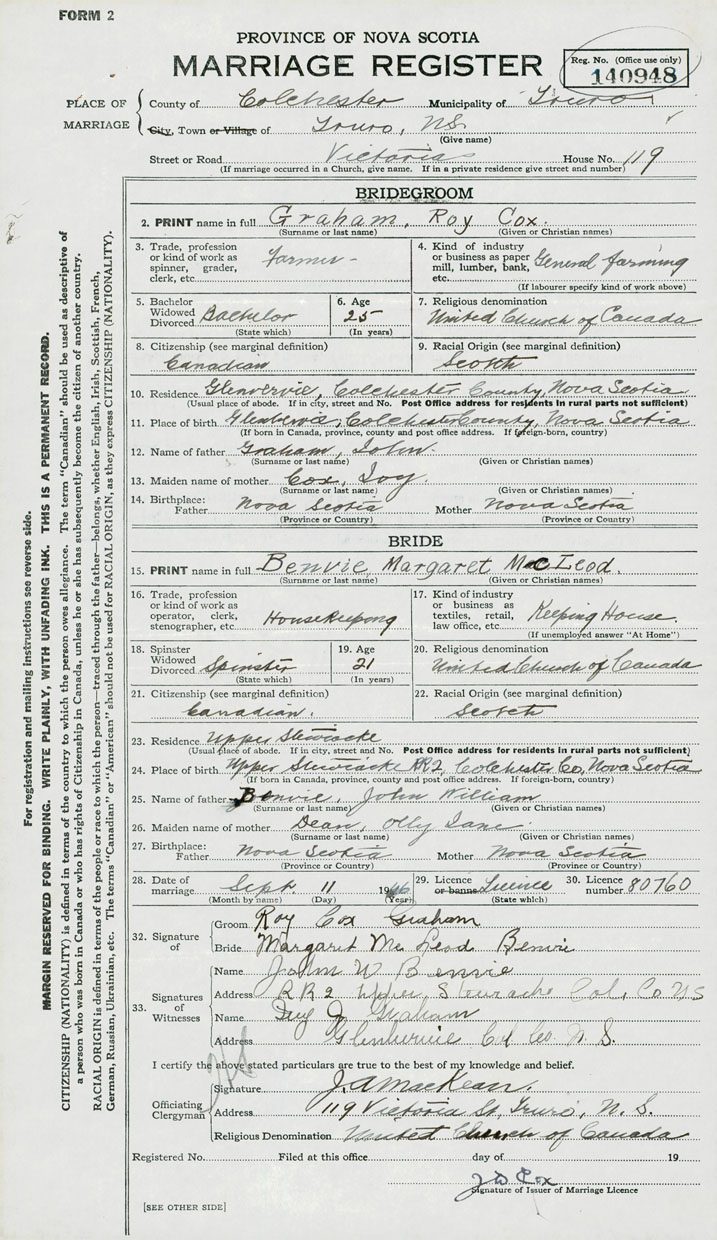 FORM 2
PROVINCE OF NOVA SCOTIA
MARRIAGE REGISTER
Reg. No. (Office use only)
140948
PLACE OF MARRIAGE
County of Colchester Municipality of Truro
City, Town or Village of Truro, NS.
(Give name)
Street or Road Victoria House No. 119
(If marriage occurred in a Church, give name. If in a private residence give street and number)
BRIDEGROOM
2. PRINT name in full Graham, Roy Cox.
(Surname or last name) (Given or Christian names)
3. Trade, profession or kind of work as spinner, grader, clerk, etc. Farmer -
4. Kind of industry or business as paper mill, lumber, bank, etc. General farming
(If labourer specify kind of work above)
5. Bachelor Widowed Divorced Bachelor
(State which)
6. Age 25
(In years)
7. Religious denomination
United Church of Canada
8. Citizenship (see marginal definition)
Canadian
9. Racial Origin (see marginal definition)
Scotch
10. Residence Glenvervie, Colchester County, Nova Scotia
(Usual place of abode. If in city, street and No. Post Office address for residents in rural parts not sufficient)
11. Place of birth Glenbervie, Colchester County, Nova Scotia
(If born in Canada, province, county and post office address. If foreign-born, country)
12. Name of father Graham, John.
(Surname or last name) (Given or Christian names)
13. Maiden name of mother Cox, Ivy
(Surname or last name) (Given or Christian names)
14. Birthplace: Father Nova Scotia Mother Nova Scotia
(Province or Country) (Province or Country)
BRIDE
15. PRINT name in full Benvie, Margaret McLeod.
(Surname or last name) (Given or Christian names)
16. Trade, profession or kind of work as operator, clerk, stenographer, etc. Housekeeping
17. Kind of industry or business as textiles, retail, law office, etc. Keeping House.
(If unemployed answer "At Home")
18. Spinster Widowed Divorced Spinster
(State which)
19. Age 21
(In years)
20. Religious denomination
United Church of Canada
21. Citizenship (see marginal definition)
Canadian.
22. Racial Origin (see marginal definition)
Scotch
23. Residence Upper Stewiacke
(Usual place of abode. If in city, street and No. Post Office address for residents in rural parts not sufficient)
24. Place of birth Upper Stewiacke RR2, Colchester Co, Nova Scotia
(If born in Canada, province, county and post office address. If foreign-born, country)
25. Name of father Benvie, John William
(Surname or last name) (Given or Christian names)
26. Maiden name of mother Dean, Olly Jane
(Surname or last name) (Given or Christian names)
27. Birthplace: Father Nova Scotia Mother Nova Scotia
(Province or Country) (Province or Country)
28. Date of marriage Sept. 11 1946
(Month by name) (Day) (Year)
29. Licence or banns Licence
(State which)
30. Licence number 80760
32. Signature of
Groom Roy Cox Graham
Bride Margaret Mc Leod Benvie
33. Signatures of Witnesses
Name John W Benvie
Address RR2 Upper Stewiacke Col. Co NS
Name Graham
Address Glenbervie Col Co. N. S.
I certify the above stated particulars are true to the best of my knowledge and belief.
Officiating Clergyman
Signature J. A MacKean.
Address 119 Victoria St, Truro, N. S.
Religious Denomination United Church of Canada
Registered No. Filed at this office day of 19
Cox
Signature of Issuer of Marriage Licence
[SEE OTHER SIDE]
For registration and mailing instructions see reverse side.
MARGIN RESERVED FOR BINDING. WRITE PLAINLY, WITH UNFADING INK. THIS IS A PERMANENT RECORD.
CITIZENSHIP (NATIONALITY) is defined in terms of the country to which the person owes allegiance. The term "Canadian" should be used as descriptive of
a person who was born in Canada or who has rights of Citizenship in Canada, unless he or she has subsequently become the citizen of another country.
RACIAL ORIGIN is defined in terms of the people or race to which the person—traced through the father—belongs, whether English, Irish, Scottish, French,
German, Russian, Ukrainian, etc. The terms "Canadian" or "American" should not be used for RACIAL ORIGIN, as they express CITIZENSHIP (NATIONALITY).